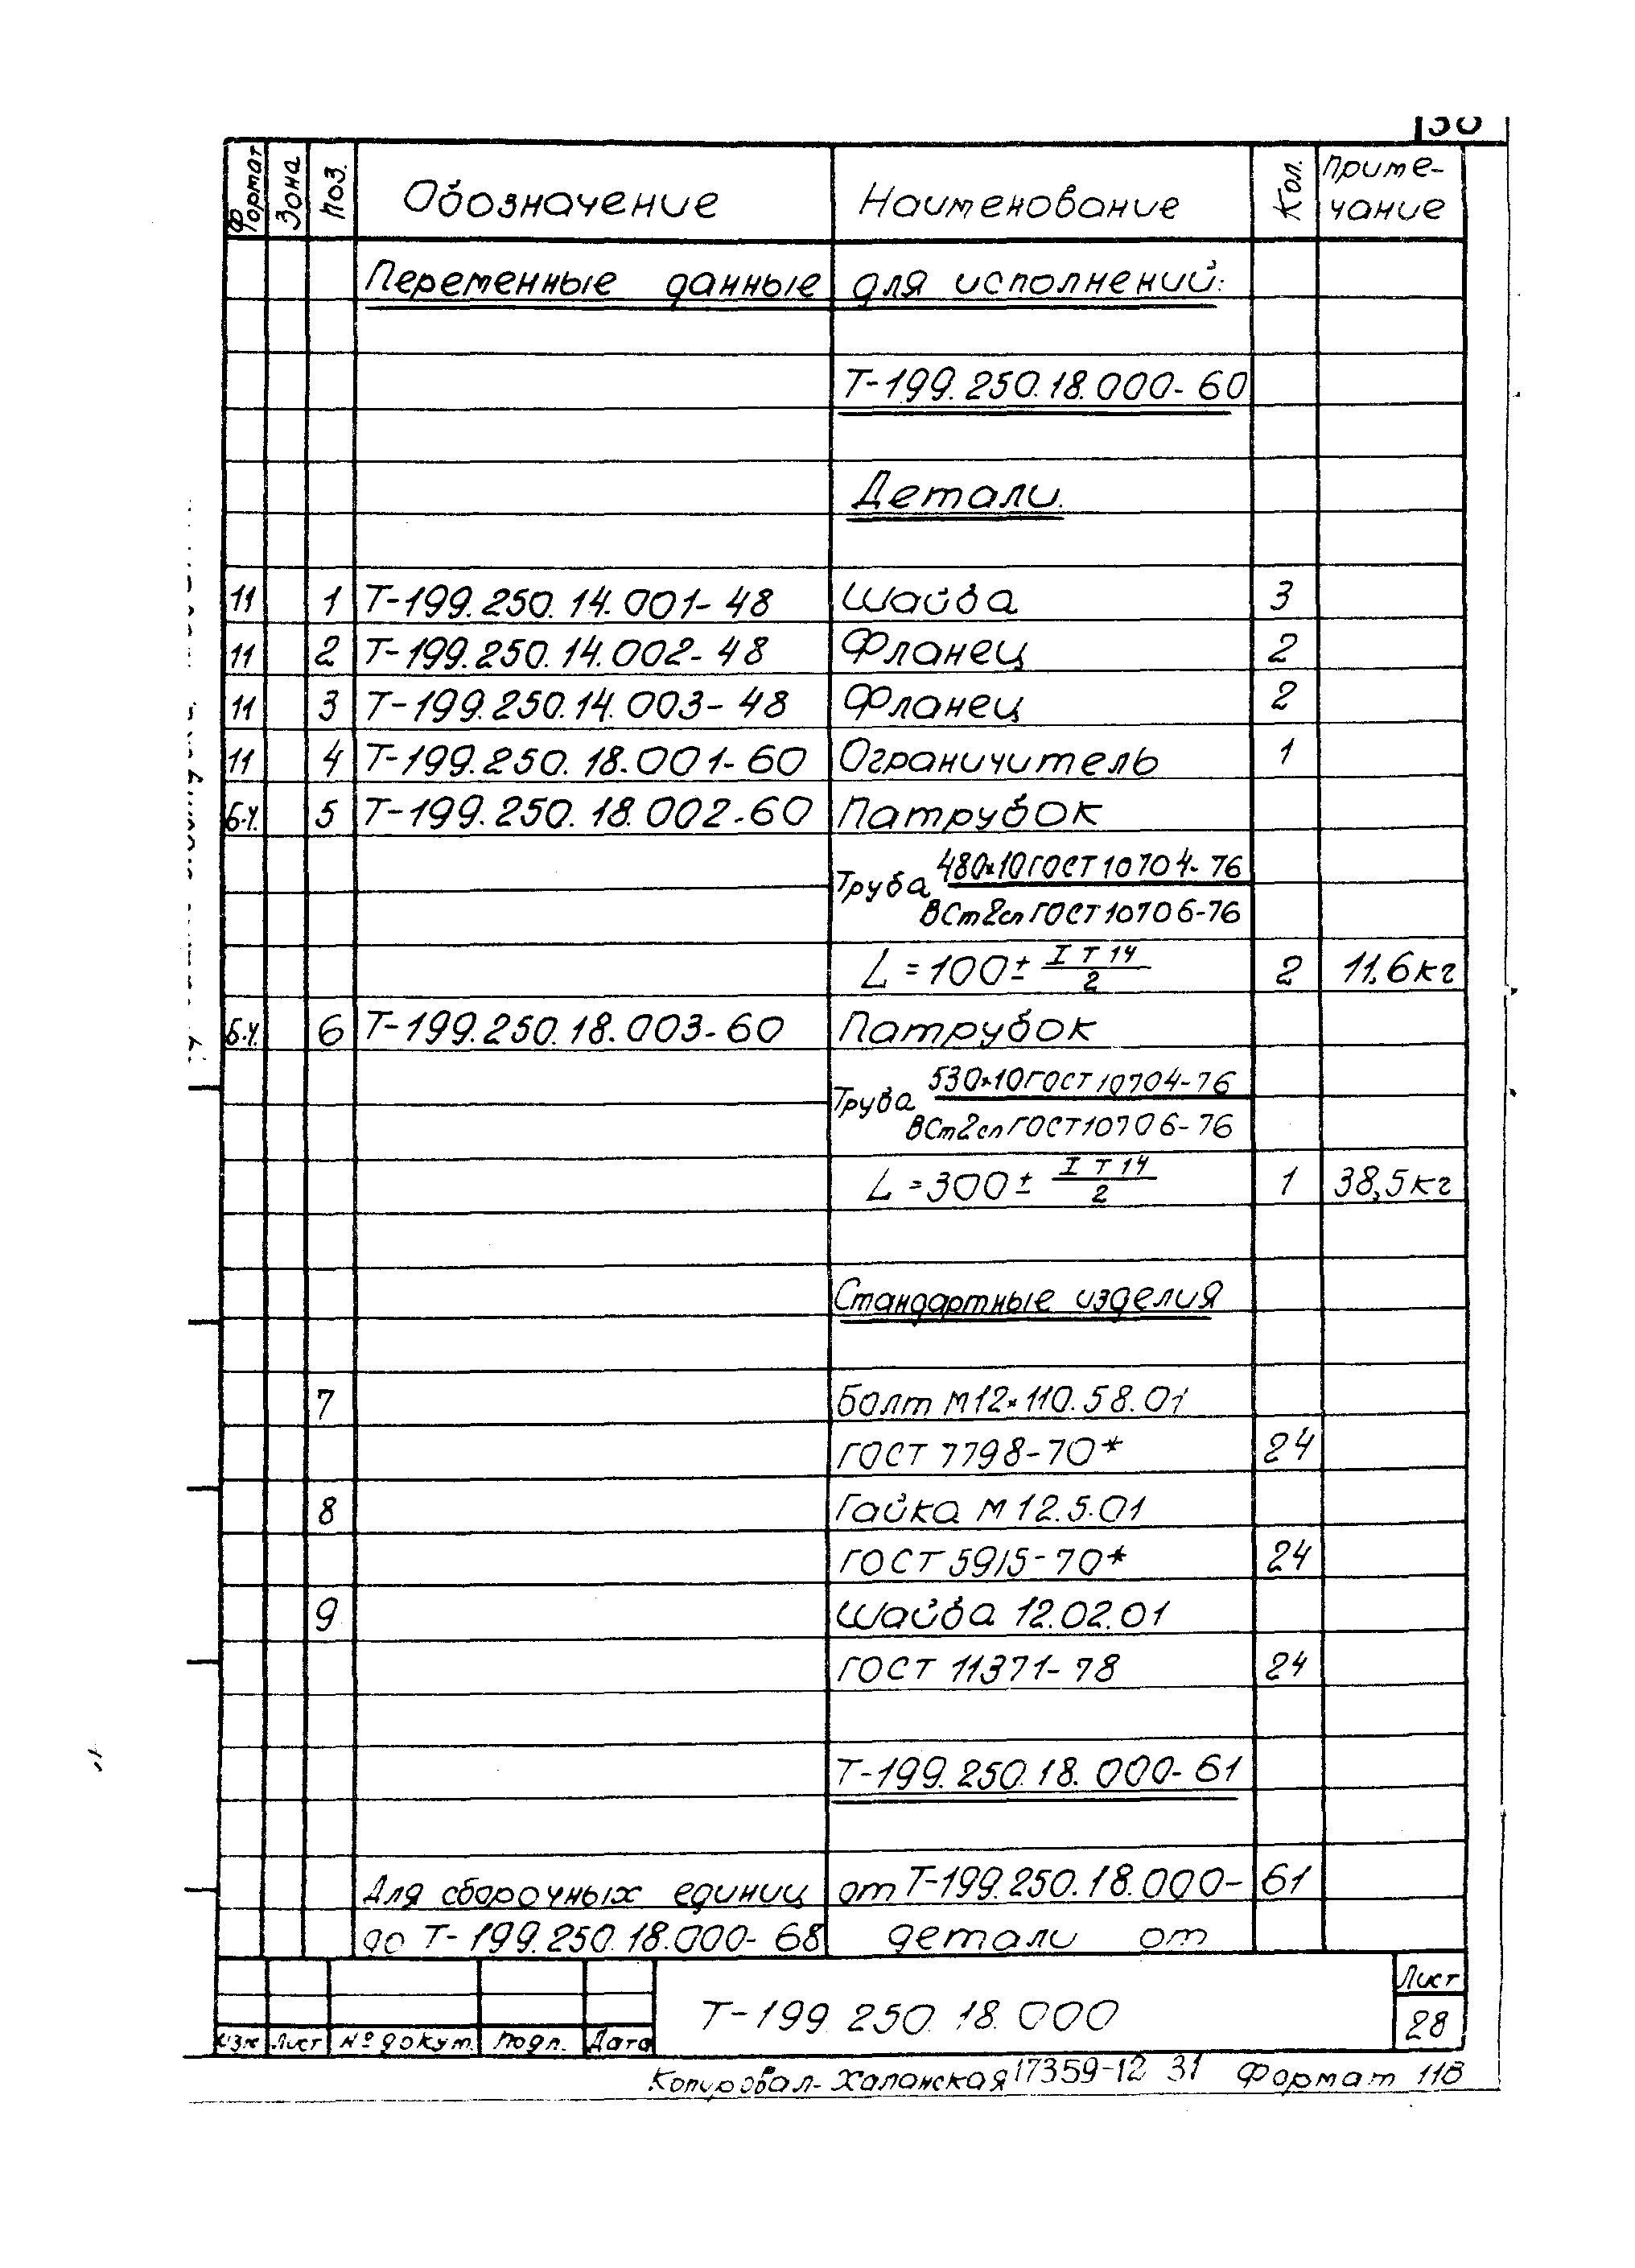 Формат Зона Поз. Обозначение Наименование Кол. Приме-
чание
Переменные данные для исполнений:
Т-199.250.18.000-60
Детали.
11 1 Т-199.250.14.001-48 Шайба 3
11 2 Т-199.250.14.002-48 Фланец 2
11 3 Т-199.250.14.003-48 Фланец 2
11 4 Т-199.250.18.001-60 Ограничитель 1
Б.Ч. 5 Т-199.250.18.002-60 Патрубок
480×10 ГОСТ 10704-76
Труба
ВСт2сп ГОСТ 10706-76
L=100± IT14/2 2 11,6кг
Б.Ч. 6 Т-199.250.18.003-60 Патрубок
530×10 ГОСТ 10704-76
Труба
ВСт2сп ГОСТ 10706-76
L=300± IT14/2 1 38,5кг
Стандартные изделия
7 Болт М12×110.58.01
ГОСТ 7798-70* 24
8 Гайка М12.5.01
ГОСТ 5915-70* 24
9 Шайба 12.02.01
ГОСТ 11371-78 24
Т-199.250.18.000-61
Для сборочных единиц от Т-199.250.18.000-61
до Т-199.250.18.000-68 детали от
Т-199 250.18.000 Лист
28
Изм Лист № докум. Подп. Дата
Копировал-Халанская 17359-12 31 Формат 11В